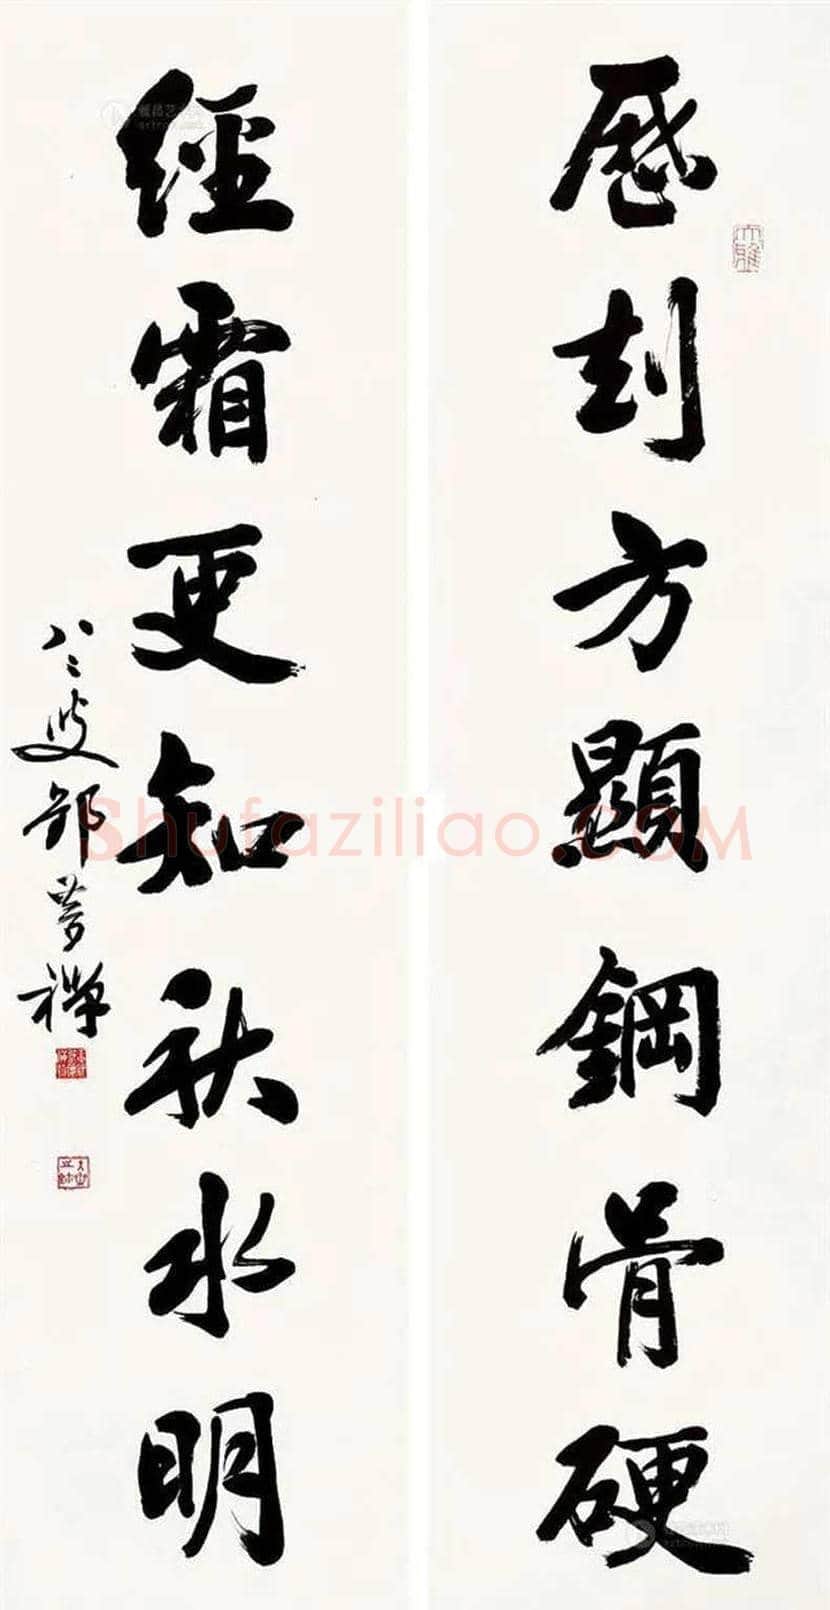 歷刦方顯鋼骨硬
經霜更知秋水明
八二叟邵夢禪
Shufaziliao.COM